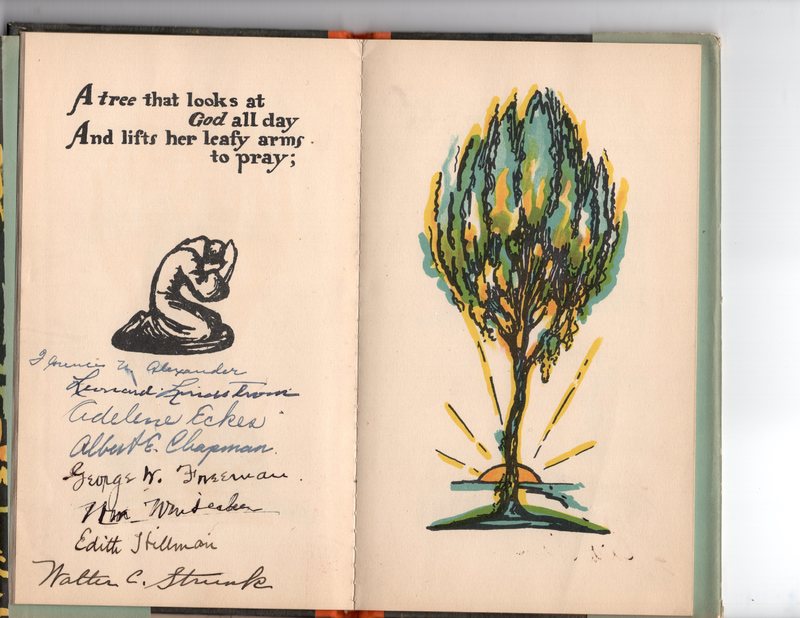 A tree that looks at
God all day
And lifts her leafy arms
to pray;
Alexander
Leonard Lindstrom
Adelene Eckes
Albert E. Chapman.
George W. Freeman.
Wm Whitesken
Edith Hillman
Walter C. Strunk